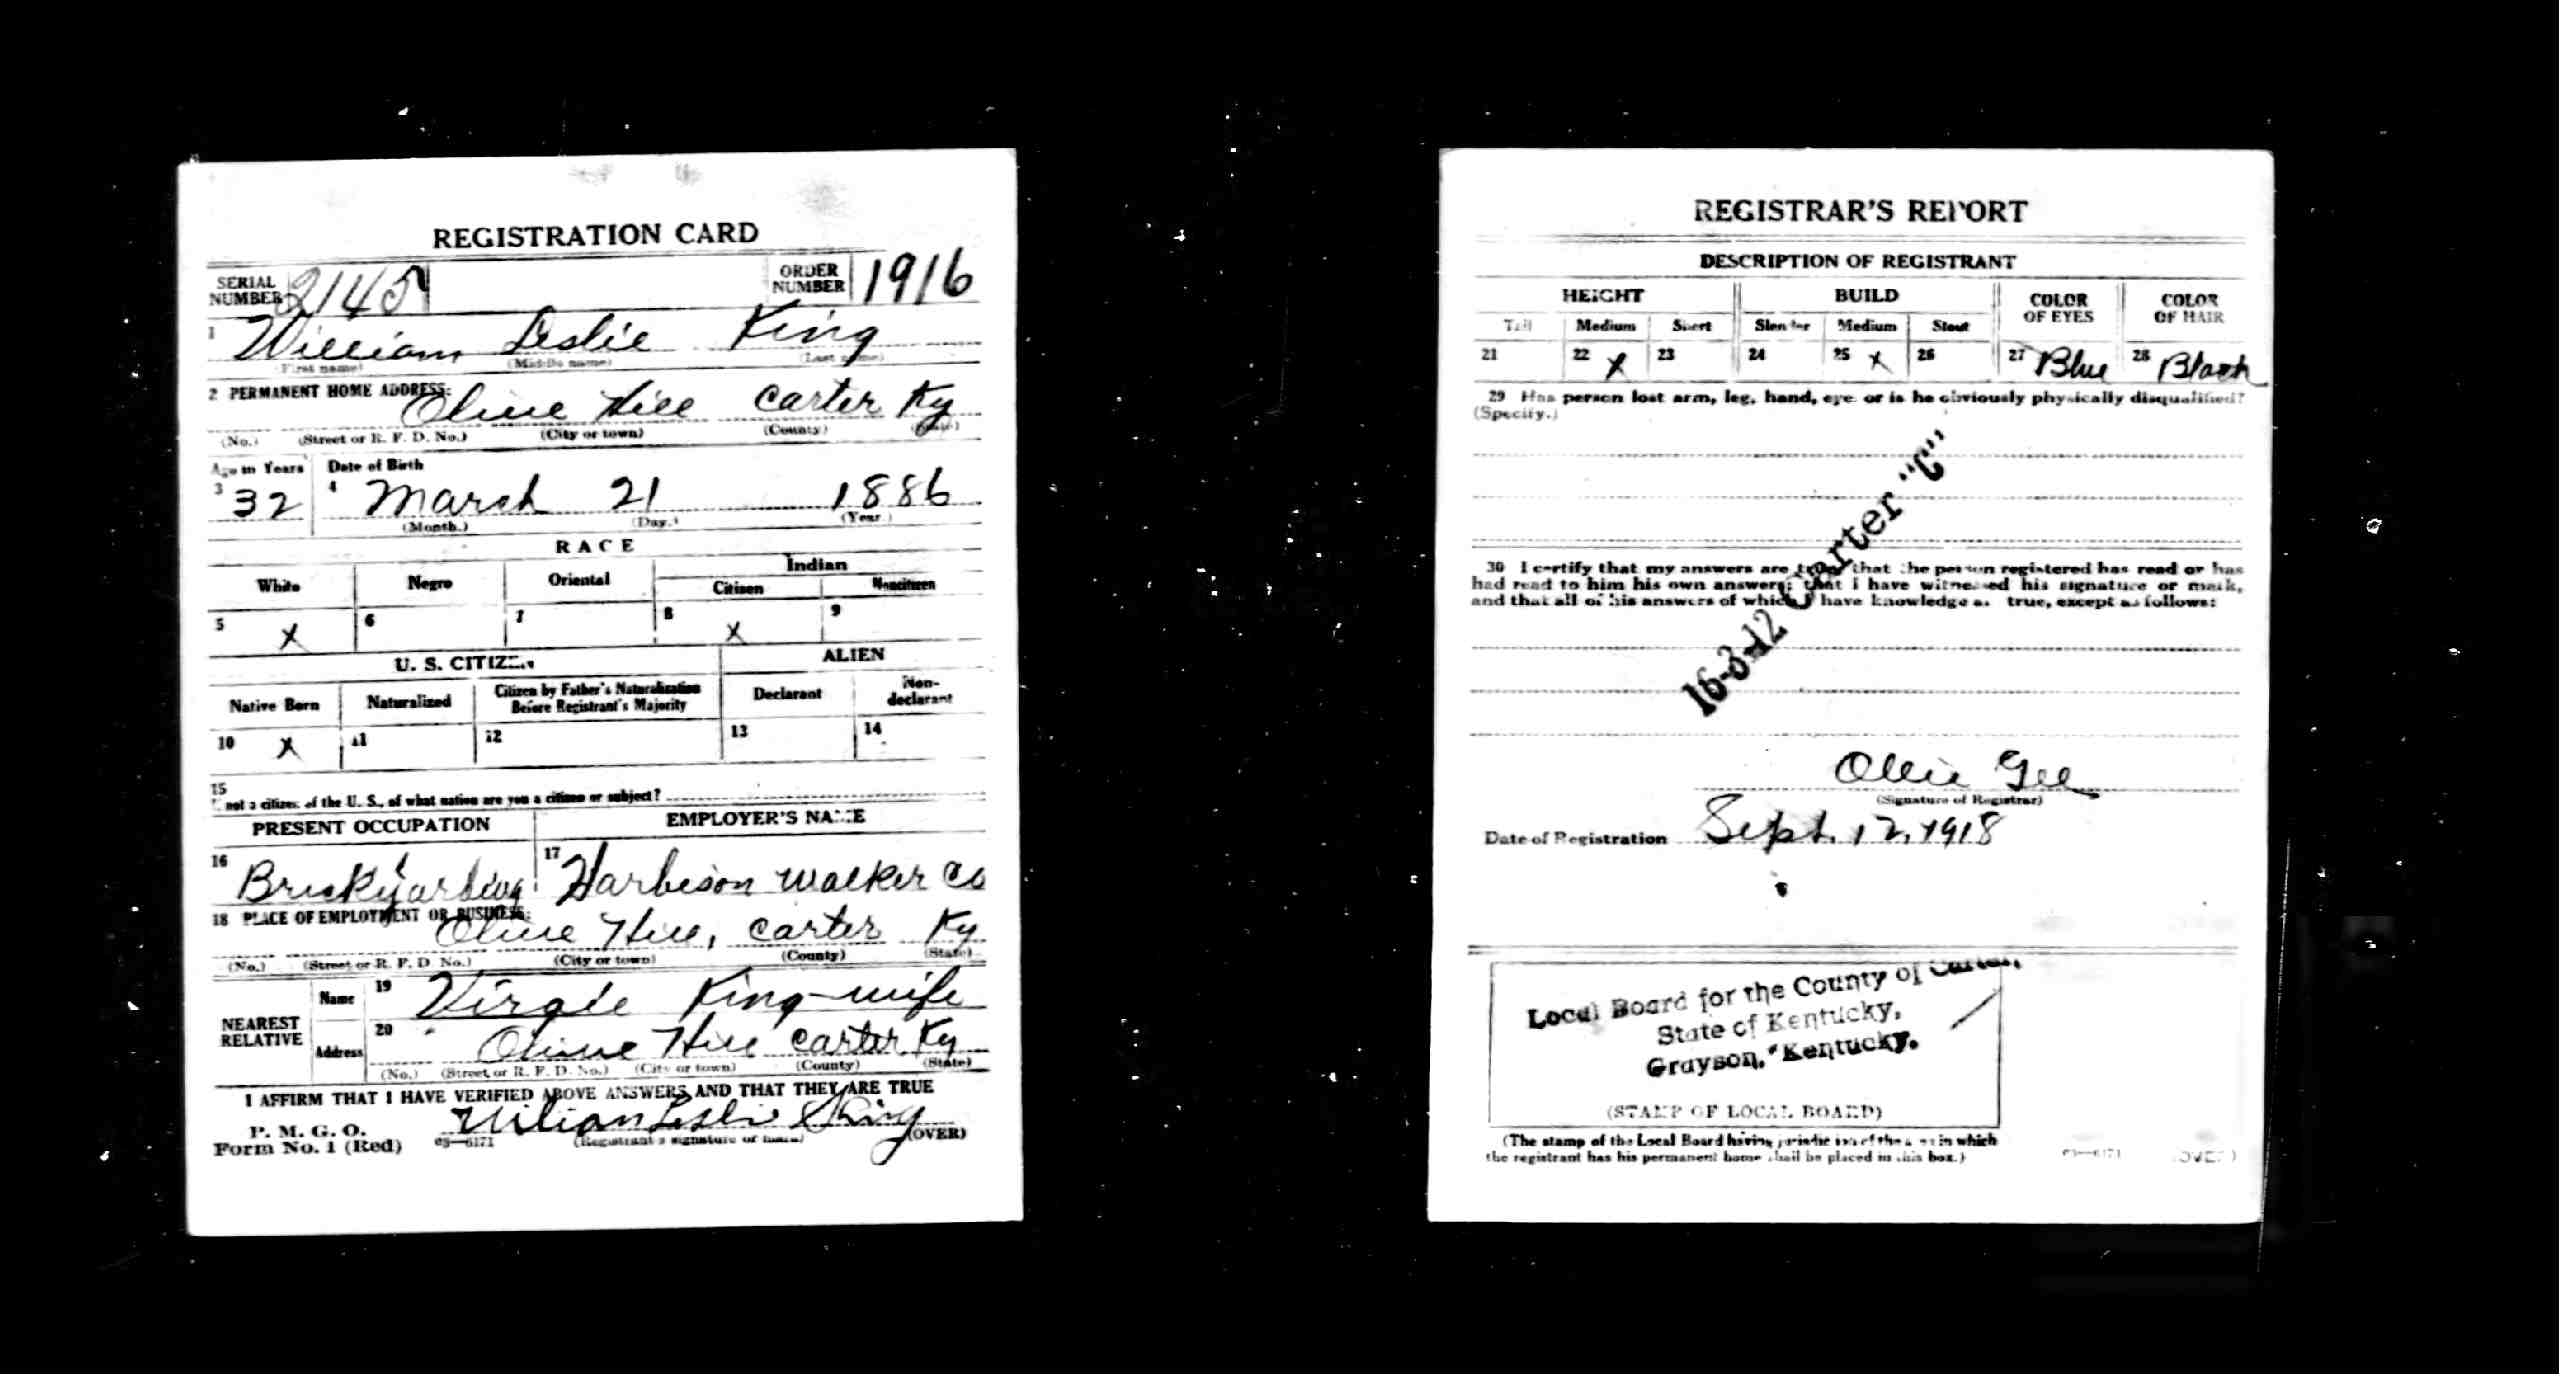 REGISTRATION CARD
SERIAL NUMBER 2145 ORDER NUMBER 1916
1 William Leslie King
(First name) (Middle name) (Last name)
2 PERMANENT HOME ADDRESS:
Olive Hill Carter Ky
(No.) (Street or R. F. D. No.) (City or town) (County) (State)
Age in Years Date of Birth
3 32 4 March 21 1886
(Month.) (Day.) (Year.)
RACE
White Negro Oriental Indian
Citizen Noncitizen
5 X 6 7 8 X 9
U. S. CITIZEN ALIEN
Native Born Naturalized Citizen by Father's Naturalization Before Registrant's Majority Declarant Non-declarant
10 X 11 12 13 14
15
If not a citizen of the U. S., of what nation are you a citizen or subject?
PRESENT OCCUPATION EMPLOYER'S NAME
16 17 Harbison Walker Co
18 PLACE OF EMPLOYMENT OR BUSINESS:
Olive Hill, Carter Ky
(No.) (Street or R. F. D. No.) (City or town) (County) (State)
NEAREST RELATIVE
Name 19 Virgie King-wife
Address 20 Olive Hill Carter Ky
(No.) (Street or R. F. D. No.) (City or town) (County) (State)
I AFFIRM THAT I HAVE VERIFIED ABOVE ANSWERS AND THAT THEY ARE TRUE
P. M. G. O.
Form No. 1 (Red) 03—6171 (Registrant's signature or mark) (OVER)
King
REGISTRAR'S REPORT
DESCRIPTION OF REGISTRANT
HEIGHT BUILD COLOR OF EYES COLOR OF HAIR
Tall Medium Short Slender Medium Stout
21 22 X 23 24 25 X 26 27 Blue 28 Black
29 Has person lost arm, leg, hand, eye, or is he obviously physically disqualified?
(Specify.)
16-3-12 Carter "C"
30 I certify that my answers are true; that the person registered has read or has
had read to him his own answers; that I have witnessed his signature or mark,
and that all of his answers of which I have knowledge are true, except as follows:
Ollie Gee
(Signature of Registrar)
Date of Registration Sept. 12, 1918
Local Board for the County of Carter,
State of Kentucky,
Grayson, Kentucky.
(STAMP OF LOCAL BOARD)
(The stamp of the Local Board having jurisdiction of the area in which
the registrant has his permanent home shall be placed in this box.)
03—6171 (OVER)